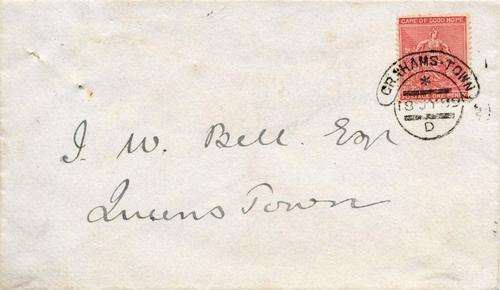 CAPE OF GOOD HOPE
GRAHAMS-TOWN
D
J. W. Bell. Esqr
Queens Town